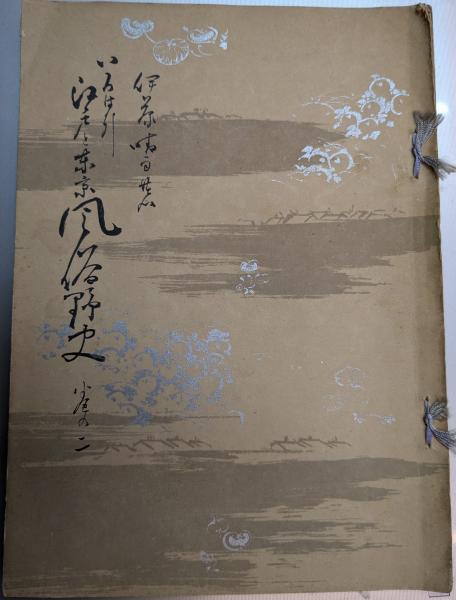 伊藤晴雨著
いろは引
江戸と東京風俗野史
巻の二